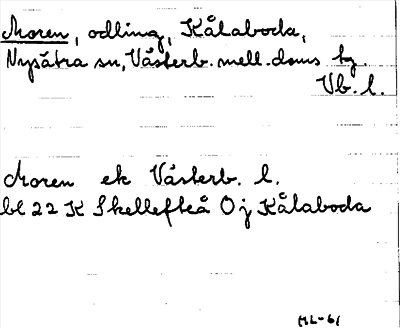 Moren, odling, Kålaboda,
Nysätra sn, Västerb. mell. doms tg.
Vb. l.
Moren ek Västerb. l.
bl 22 K Skellefteå O j Kålaboda
ML-61